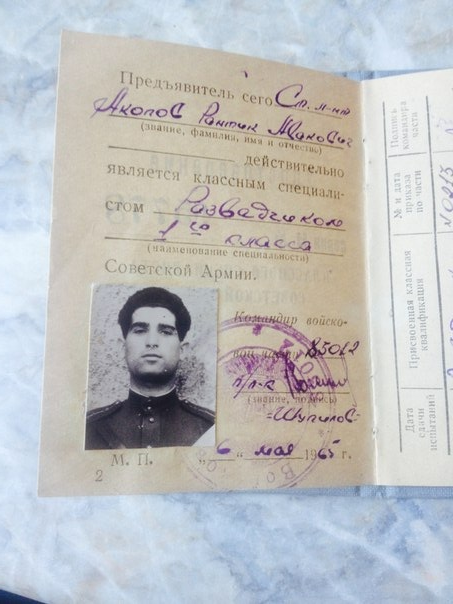 Предъявитель сего Ст. л-нт
Акопов Рантик Макович
(звание, фамилия, имя и отчество)
действительно
является классным специали-
стом Разведчиком
1го класса
(наименование специальности)
Советской Армии.
Командир войско-
вой части 85012
п/п-к
(звание, подпись)
=Шупилов=
М. П. „6“ мая 1965 г.
2
Дата сдачи испытаний
Присвоенная классная квалификация
№ и дата приказа по части
Подпись командира части